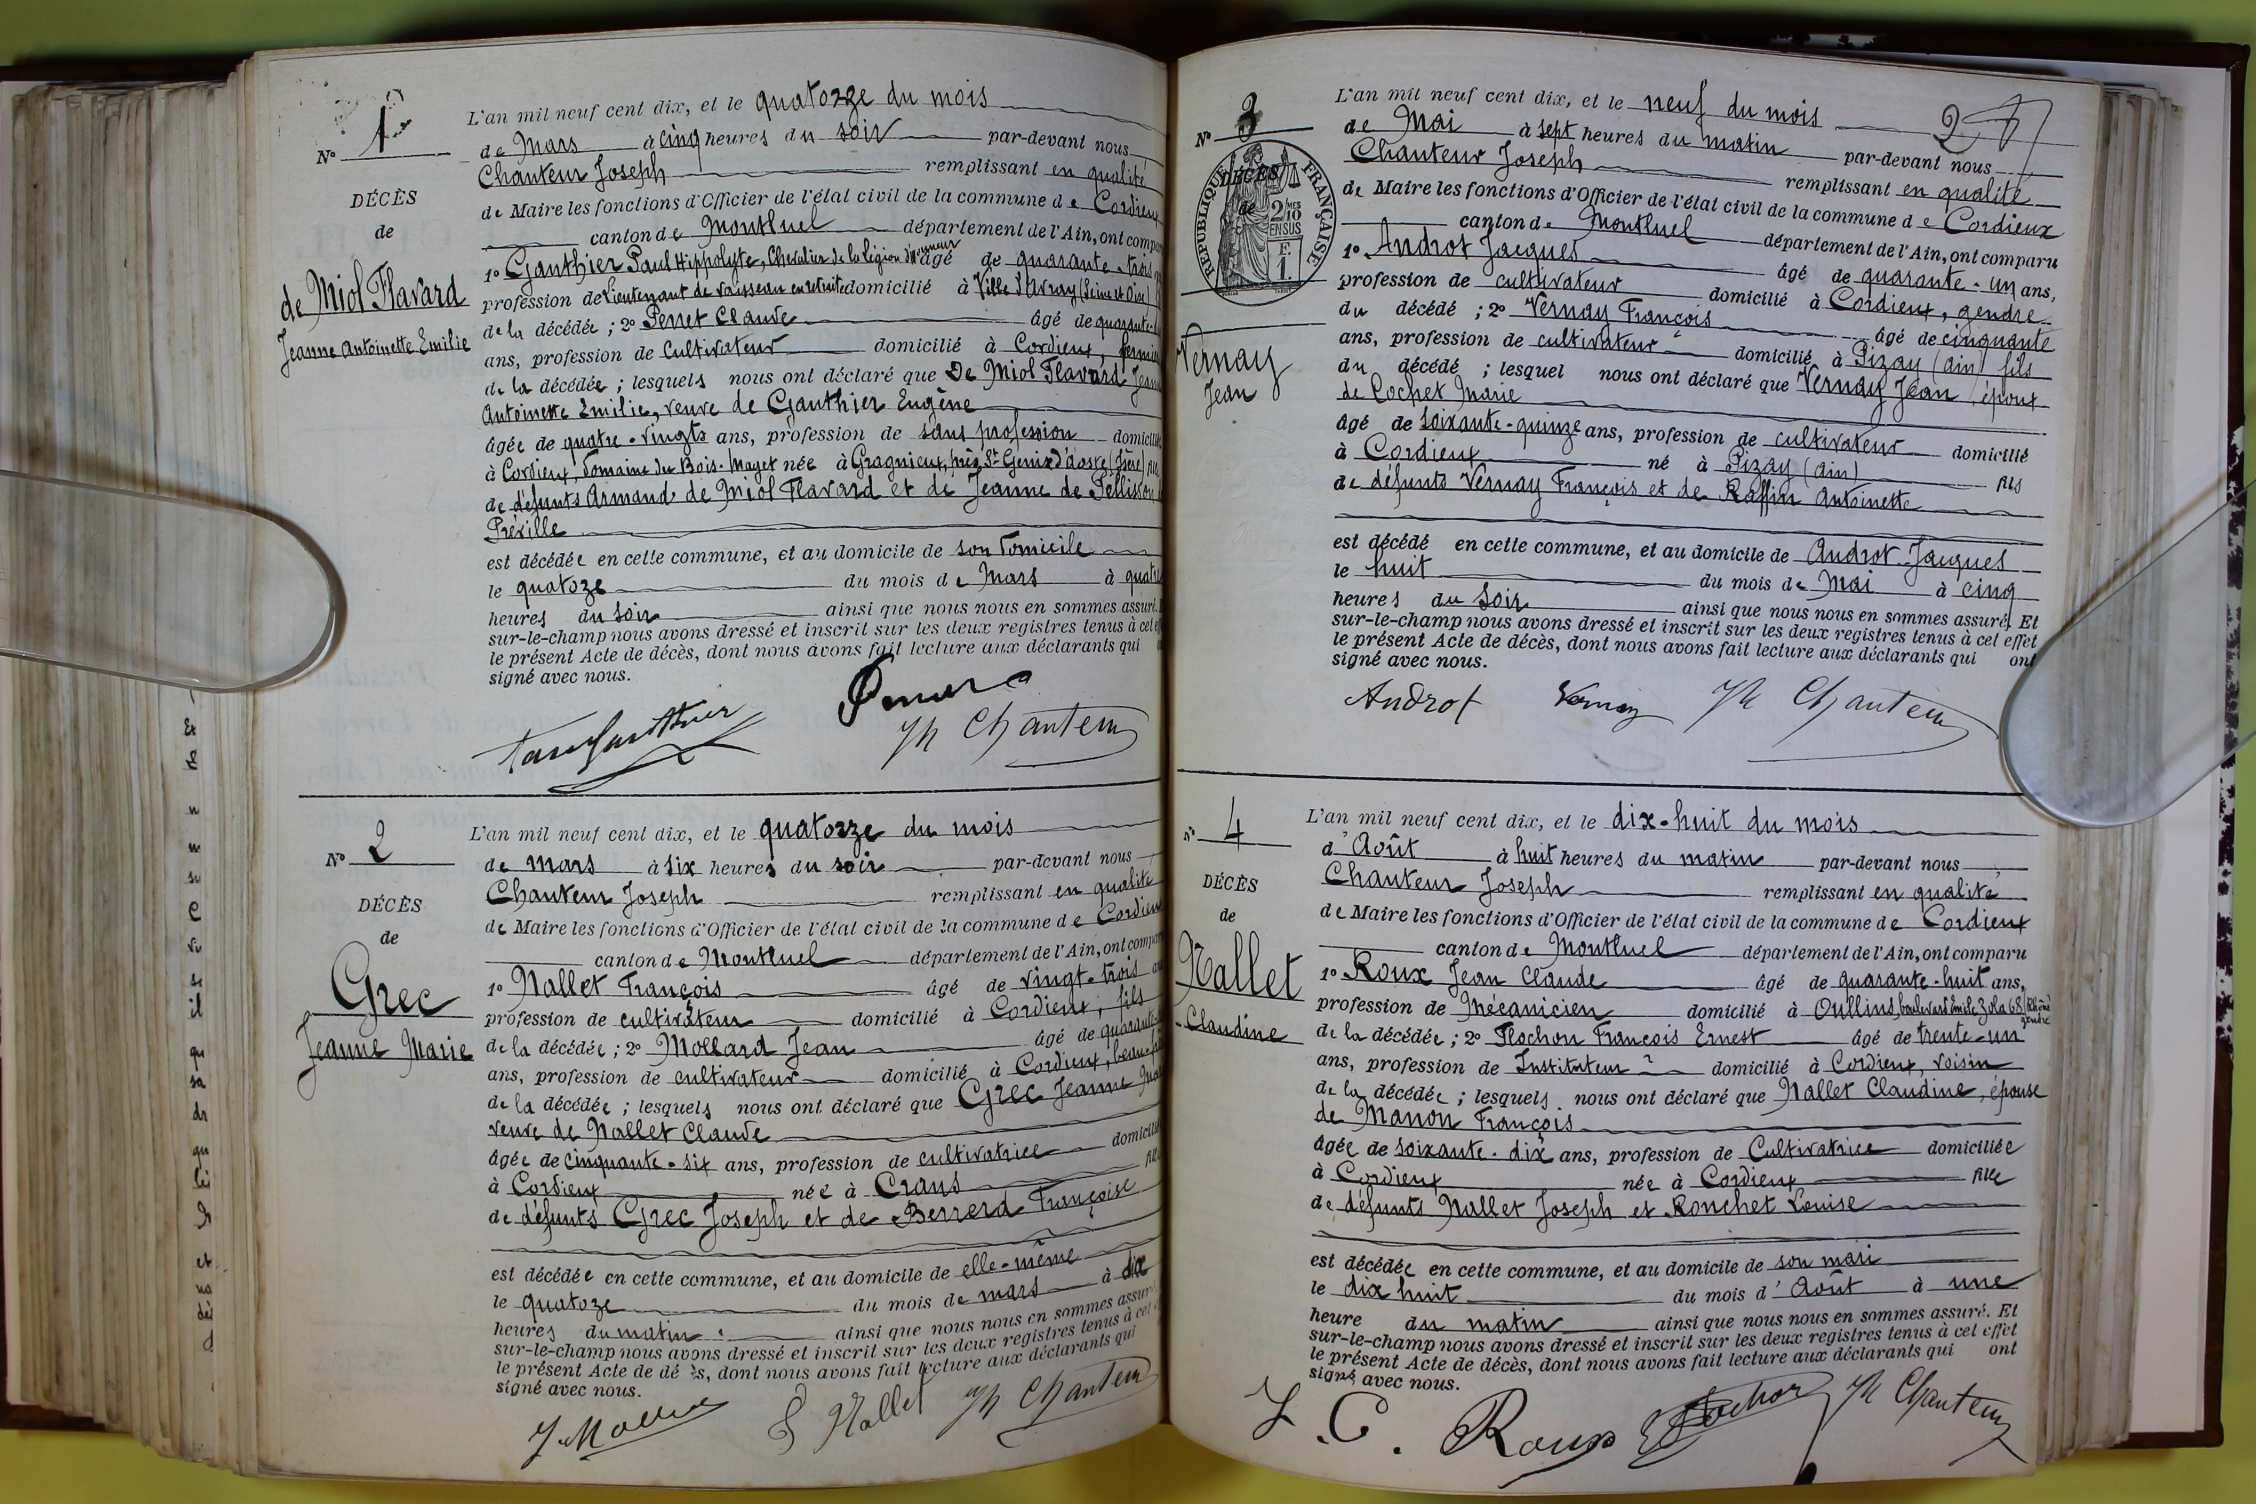 N° 1
DÉCÈS
de
de Miol Flavard
Jeanne Antoinette Emilie
L'an mil neuf cent dix, et le quatorze du mois
de Mars à cinq heures du soir par-devant nous
Chanteur Joseph remplissant en qualité
de Maire les fonctions d'Officier de l'état civil de la commune de Cordieux
canton de Montluel département de l'Ain, ont compar
1° Gauthier Paul Hippolyte, Chevalier de la légion d'honneur âgé de quarante-trois
profession de Lieutenant de vaisseau en retraite domicilié à Ville d'Avray (Seine et Oise)
de la décédée ; 2° Perret Claude âgé de quarante
ans, profession de Cultivateur domicilié à Cordieux, fermier
de la décédée ; lesquels nous ont déclaré que De Miol Flavard Jeanne
Antoinette Emilie, veuve de Gauthier Eugène
âgée de quatre-vingts ans, profession de sans profession domiciliée
à Cordieux, Domaine du Bois-Maget née à Gragnieux, près St Genix d'aoste (Isère) fille
de défunts Armand de Miol Flavard et de Jeanne de Pellisson
Préville
est décédée en cette commune, et au domicile de son domicile
le quatoze du mois de Mars à quatre
heures du soir ainsi que nous nous en sommes assuré.
sur-le-champ nous avons dressé et inscrit sur les deux registres tenus à cet
le présent Acte de décès, dont nous avons fait lecture aux déclarants qui
signé avec nous.
Paul Gauthier Perret Jh Chanteur
N° 2
DÉCÈS
de
Grec
Jeanne Marie
L'an mil neuf cent dix, et le quatorze du mois
de mars à six heures du soir par-devant nous
Chanteur Joseph remplissant en qualité
de Maire les fonctions d'Officier de l'état civil de la commune de Cordieux
canton de Montluel département de l'Ain, ont compar
1° Nallet François âgé de vingt-trois
profession de cultivateur domicilié à Cordieux, fils
de la décédée ; 2° Mollard Jean âgé de quarante
ans, profession de cultivateur domicilié à Cordieux, beau-
de la décédée ; lesquels nous ont déclaré que Grec Jeanne Marie
veuve de Nallet Claude
âgée de cinquante-six ans, profession de cultivatrice domiciliée
à Cordieux née à Crans fille
de défunts Grec Joseph et de Berrerd Françoise
est décédée en cette commune, et au domicile de elle-même
le quatoze du mois de mars à dix
heures du matin ainsi que nous nous en sommes assuré
sur-le-champ nous avons dressé et inscrit sur les deux registres tenus à cet
le présent Acte de dé ès, dont nous avons fait lecture aux déclarants qui
signé avec nous.
J. Mollard F Nallet Jh Chanteur
2
N° 3
DÉCÈS
de
RÉPUBLIQUE FRANÇAISE
2 MES
10
EN SUS
F.
1
Vernay
Jean
L'an mil neuf cent dix, et le neuf du mois
de Mai à sept heures du matin par-devant nous
Chanteur Joseph remplissant en qualité
de Maire les fonctions d'Officier de l'état civil de la commune de Cordieux
canton de Montluel département de l'Ain, ont comparu
1° Androt Jacques âgé de quarante-un ans,
profession de cultivateur domicilié à Cordieux, gendre
du décédé ; 2° Vernay François âgé de cinquante
ans, profession de cultivateur domicilié à Pizay (ain) fils
du décédé ; lesquel nous ont déclaré que Vernay Jean, époux
de Cochet Marie
âgé de soixante-quinze ans, profession de cultivateur domicilié
à Cordieux né à Pizay (ain) fils
de défunts Vernay François et de Raffin Antoinette
est décédé en cette commune, et au domicile de Androt Jacques
le huit du mois de Mai à cinq
heures du soir ainsi que nous nous en sommes assuré. Et
sur-le-champ nous avons dressé et inscrit sur les deux registres tenus à cet effet
le présent Acte de décès, dont nous avons fait lecture aux déclarants qui ont
signé avec nous.
Androt Vernay Jh Chanteur
N° 4
DÉCÈS
de
Nallet
Claudine
L'an mil neuf cent dix, et le dix-huit du mois
d'Août à huit heures du matin par-devant nous
Chanteur Joseph remplissant en qualité
de Maire les fonctions d'Officier de l'état civil de la commune de Cordieux
canton de Montluel département de l'Ain, ont comparu
1° Roux Jean Claude âgé de quarante-huit ans,
profession de Mécanicien domicilié à Oullins, boulevard Emile Zola 68 (Rhône) gendre
de la décédée ; 2° Flochon François Ernest âgé de trente-un
ans, profession de Instituteur domicilié à Cordieux, voisin
de la décédée ; lesquels nous ont déclaré que Nallet Claudine, épouse
de Manon François
âgée de soixante-dix ans, profession de Cultivatrice domiciliée
à Cordieux née à Cordieux fille
de défunts Nallet Joseph et Ronchet Louise
est décédée en cette commune, et au domicile de son mari
le dix huit du mois d'Août à une
heure du matin ainsi que nous nous en sommes assuré. Et
sur-le-champ nous avons dressé et inscrit sur les deux registres tenus à cet effet
le présent Acte de décès, dont nous avons fait lecture aux déclarants qui ont
signé avec nous.
J. C. Roux E Flochon Jh Chanteur